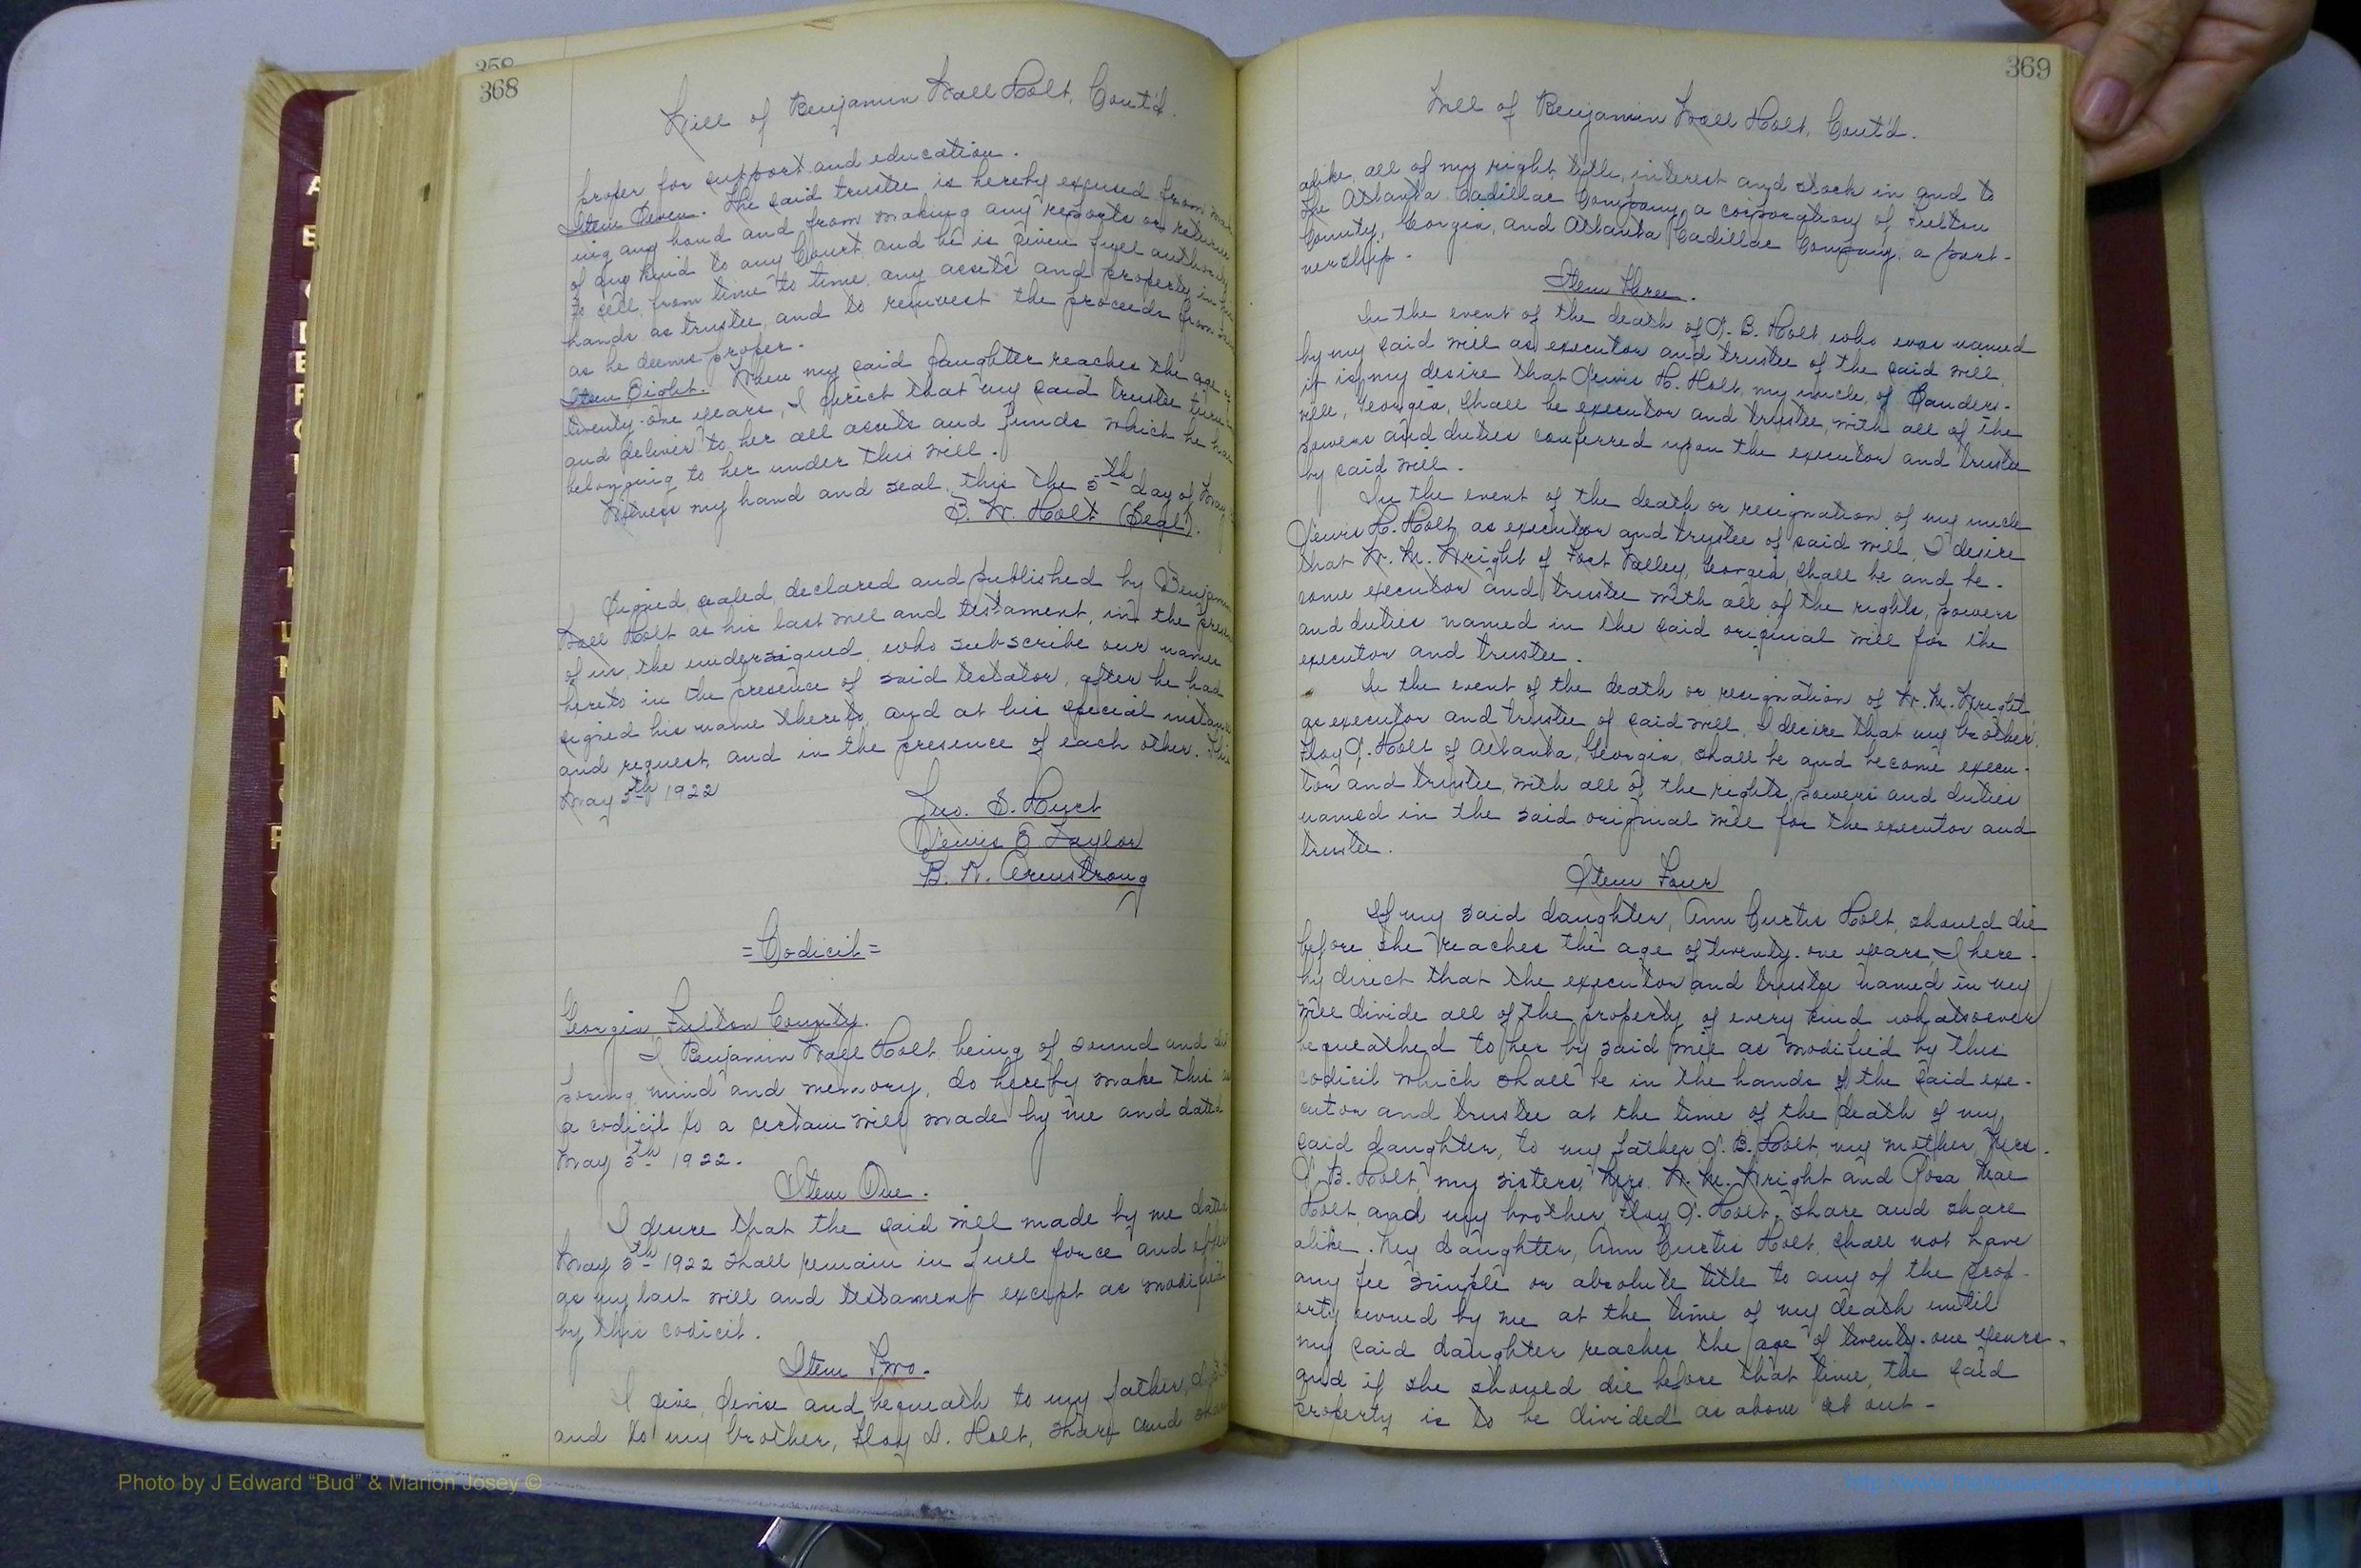 358
368
Will of Benjamin Wall Holt, Cont'd.
proper for support and education.
Item Seven. The said trustee is hereby excused from
ing any bond and from making any reports or returns
of any kind to any Court and he is given full authority
to sell from time to time any assets and property in
hands as trustee, and to reinvest the proceeds from
as he deems proper.
Item Eight. When my said daughter reaches the age
twenty-one years, I direct that my said trustee turn
and deliver to her all assets and funds which he
belonging to her under this will.
Witness my hand and seal, this the 5th day of May
B. W. Holt (Seal).
Signed, sealed, declared and published by Benjamin
Wall Holt as his last will and testament, in the
of us, the undersigned, who subscribe our names
hereto in the presence of said testator, after he had
signed his name thereto, and at his special instance
and request, and in the presence of each other. This
May 5th 1922
Jno. S. Hurt
Lewis E Taylor
B. R. Armstrong
=Codicil=
Georgia Fulton County.
I Benjamin Wall Holt, being of sound and
posing mind and memory, do hereby make this
a codicil to a certain will made by me and dated
May 5th 1922.
Item One.
I desire that the said will made by me dated
May 5th 1922 shall remain in full force and effect
as my last will and testament except as modified
by this codicil.
Item Two.
I give, devise and bequeath to my father,
and to my brother, Floy D. Holt, share and
369
Will of Benjamin Wall Holt, Cont'd.
alike, all of my right, title, interest and stock in and to
the Atlanta Cadillac Company, a corporation of Fulton
County, Georgia, and Atlanta Cadillac Company, a part-
nership.
Item Three.
In the event of the death of J. B. Holt, who was named
by my said will as executor and trustee of the said will,
it is my desire that Lewis H. Holt, my uncle, of Sanders-
ville, Georgia, shall be executor and trustee, with all of the
powers and duties conferred upon the executor and trustee
by said will.
In the event of the death or resignation of my uncle
Lewis H. Holt, as executor and trustee of said will, I desire
that W. M. Wright of Fort Valley, Georgia, shall be and be-
come executor and trustee with all of the rights, powers
and duties named in the said original will for the
executor and trustee.
In the event of the death or resignation of W. M. Wright
as executor and trustee of said will, I desire that my brother,
Floy J. Holt of Atlanta, Georgia, shall be and become execu-
tor and trustee, with all of the rights, powers and duties
named in the said original will for the executor and
trustee.
Item Four
If my said daughter, Ann Curtis Holt, should die
before she reaches the age of twenty-one years, I here-
by direct that the executor and trustee named in my
will divide all of the property of every kind whatsoever
bequeathed to her by said will as modified by this
codicil which shall be in the hands of the said exe-
cutor and trustee at the time of the death of my
said daughter, to my father J. B. Holt, my mother, Mrs.
J. B. Holt, my sisters, Mrs. W. M. Wright and Rosa Mae
Holt, and my brother, Floy J. Holt, share and share
alike. My daughter, Ann Curtis Holt, shall not have
any fee simple or absolute title to any of the prop-
erty owned by me at the time of my death until
my said daughter reaches the age of twenty-one years-
and if she should die before that time, the said
property is to be divided as above set out-
Photo by J Edward "Bud" & Marion Josey ©